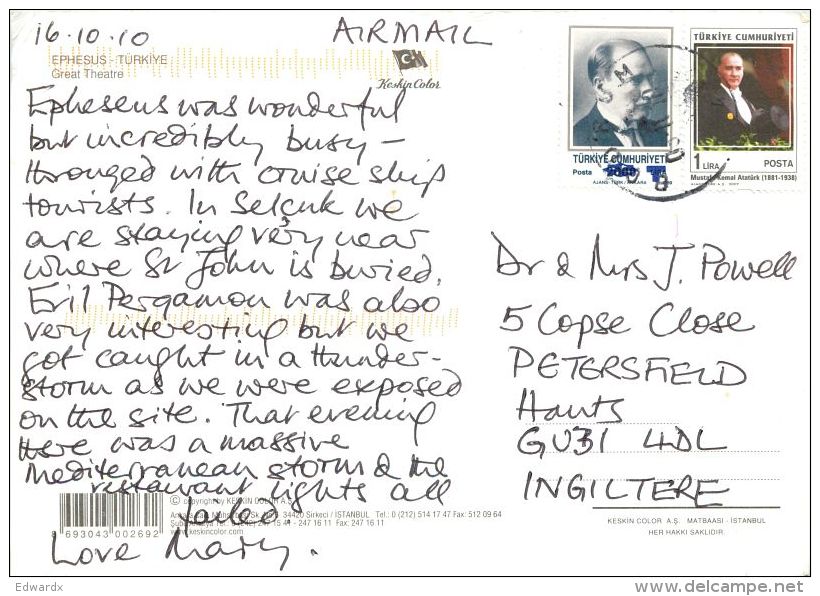 16.10.10 AIRMAIL
EPHESUS - TÜRKİYE
Great Theatre
Keskin Color
Epheseus was wonderful
but incredibly busy -
thronged with cruise ship
tourists. In Selçuk we
are staying very near
where St John is buried.
Evil Pergamon was also
very interesting but we
got caught in a thunder-
storm as we were exposed
on the site. That evening
there was a massive
mediterranean storm & the
restaurant lights all
failed.
Love Mary.
© copyright by KESKİN COLOR A.Ş.
34420 Sirkeci / İSTANBUL Tel.: 0 (212) 514 17 47 Fax: 512 09 64
247 16 11 Fax: 247 16 11
www.keskincolor.com
8 693043 002692
TÜRKİYE CUMHURİYETİ
Posta
AJANS-TÜRK / ANKARA
TÜRKİYE CUMHURİYETİ
1 LİRA POSTA
Mustafa Kemal Atatürk (1881-1938)
Dr & Mrs J. Powell
5 Copse Close
PETERSFIELD
Hants
GU31 4DL
INGILTERE
KESKİN COLOR A.Ş. MATBAASI - İSTANBUL
HER HAKKI SAKLIDIR.
Edwardx
delcampe.net